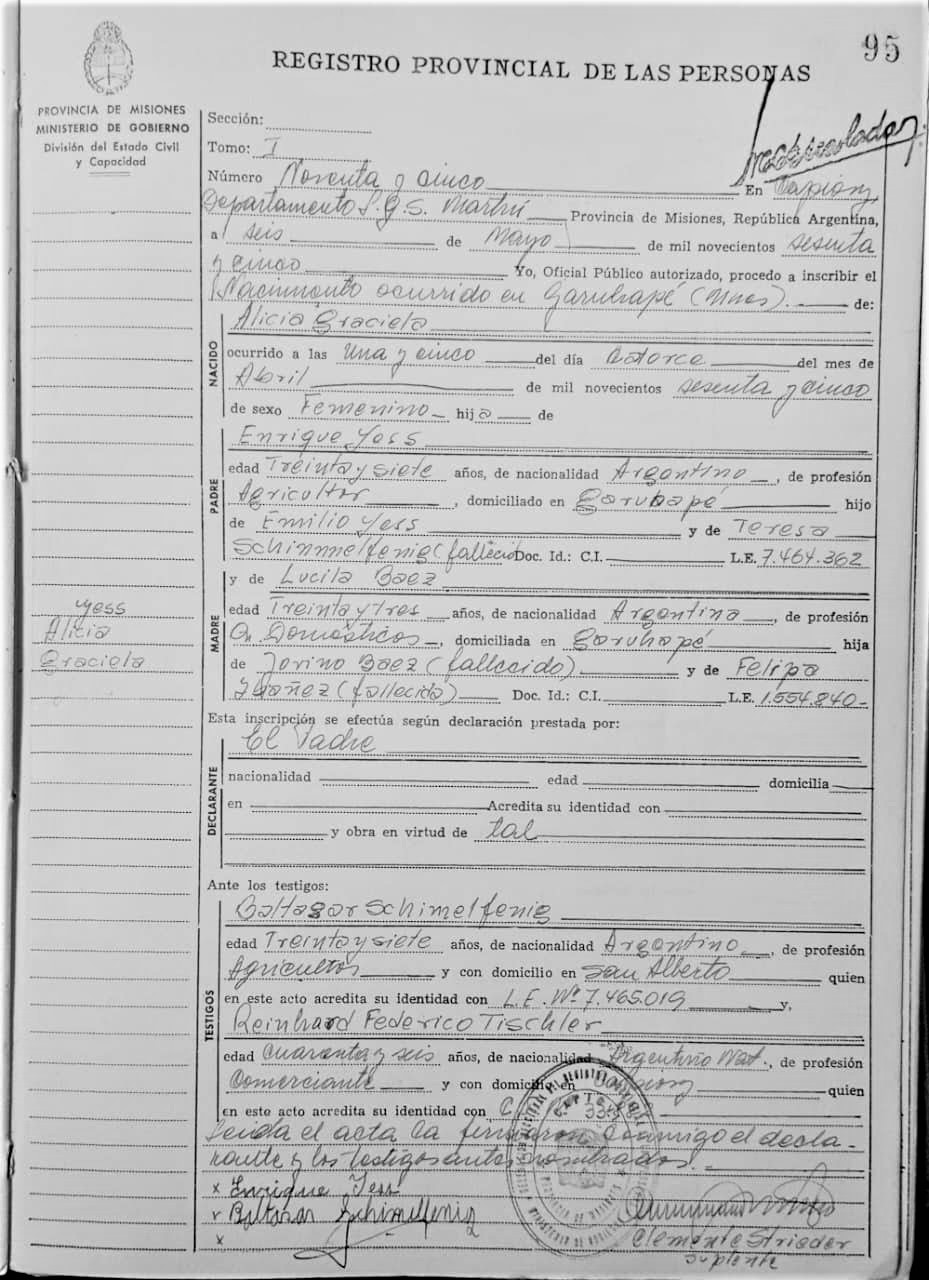 95
REGISTRO PROVINCIAL DE LAS PERSONAS
PROVINCIA DE MISIONES
MINISTERIO DE GOBIERNO
División del Estado Civil
y Capacidad
Sección:
Tomo: I
Número Noventa y cinco En Capiovy,
Departamento L.G.S. Martín Provincia de Misiones, República Argentina,
a seis de Mayo de mil novecientos sesenta
y cinco Yo, Oficial Público autorizado, procedo a inscribir el
Nacimiento ocurrido en Garuhapé (Mnes). de:
NACIDO
Alicia Graciela
ocurrido a las Una y cinco del día Catorce del mes de
Abril de mil novecientos sesenta y cinco
de sexo Femenino hija de
PADRE
Enrique Yess
edad Treinta y siete años, de nacionalidad Argentino, de profesión
Agricultor, domiciliado en Garuhapé hijo
de Emilio Yess y de Teresa
Schimmelfenig (falleció Doc. Id.: C.I. L.E. 7.464.362
y de Lucila Baez
Yess
Alicia
Graciela
MADRE
edad Treinta y Tres años, de nacionalidad Argentina, de profesión
Q. Domésticos, domiciliada en Garuhapé hija
de Jovino Baez (fallecido) y de Felipa
Ibáñez (fallecida) Doc. Id.: C.I. L.E. 1.554.840-
Esta inscripción se efectúa según declaración prestada por:
DECLARANTE
El Padre
nacionalidad edad domicilia
en Acredita su identidad con
y obra en virtud de tal
Ante los testigos:
TESTIGOS
Baltazar Schimelfenig
edad Treinta y siete años, de nacionalidad Argentino, de profesión
Agricultor y con domicilio en San Alberto quien
en este acto acredita su identidad con L.E. Nº 7.465.019 y,
Reinhard Federico Tischler
edad Cuarenta y seis años, de nacionalidad Argentino Nat., de profesión
Comerciante y con domicilio en Capiovy quien
en este acto acredita su identidad con C.
Leída el acta la firmaron conmigo el decla-
rante y los testigos antes nombrados.
x Enrique Yess
x Baltazar Schimelfenig
x
Clemente Strieder
suplente